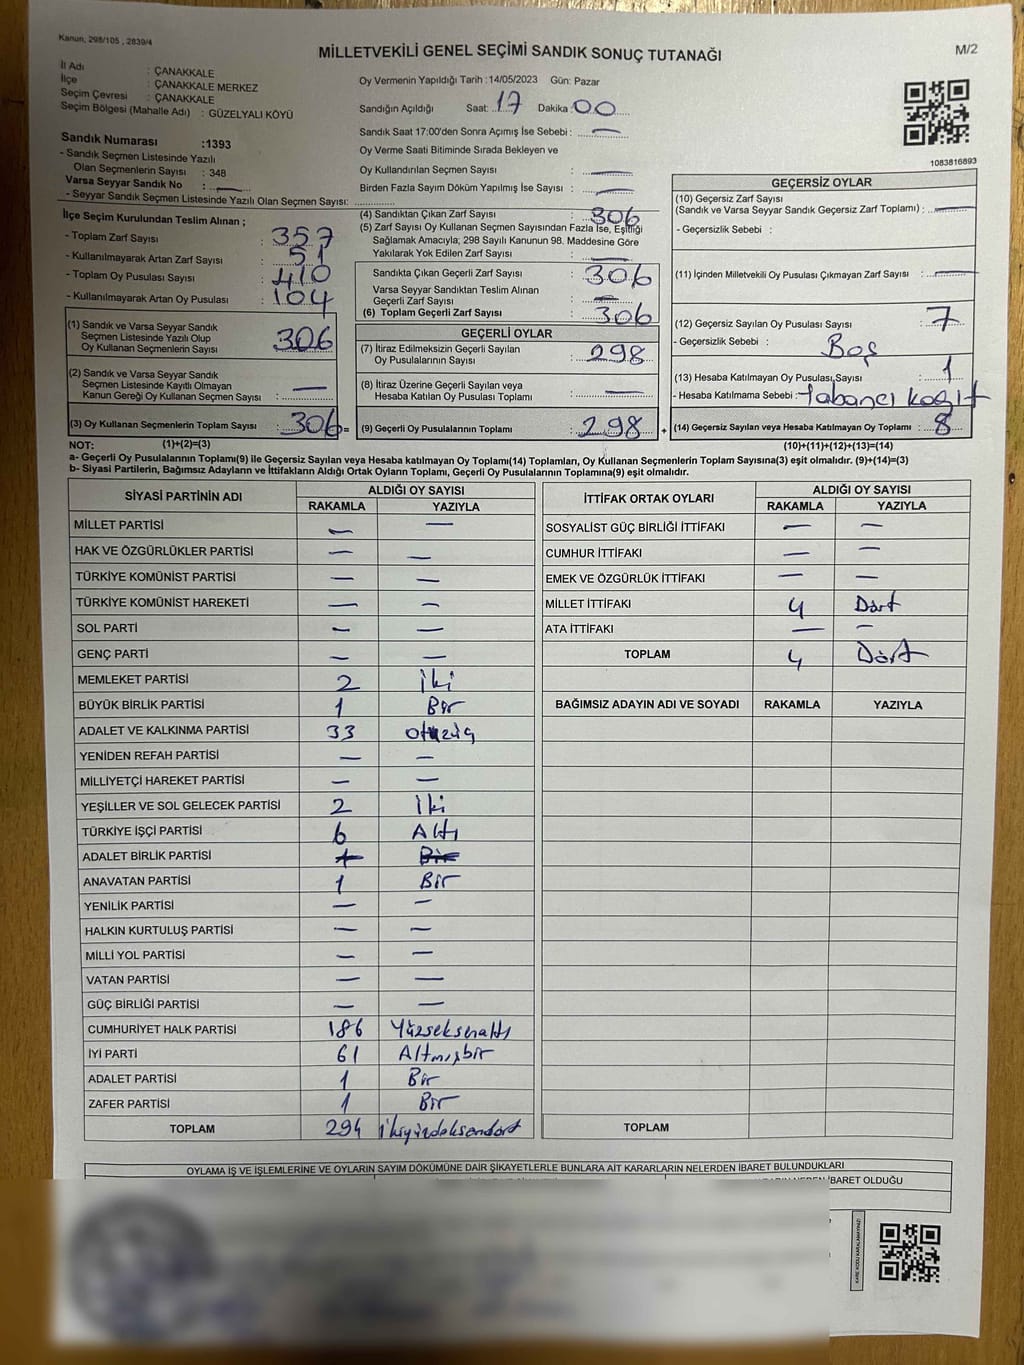 Kanun, 298/105 , 2839/4
MİLLETVEKİLİ GENEL SEÇİMİ SANDIK SONUÇ TUTANAĞI
M/2
İl Adı : ÇANAKKALE
İlçe : ÇANAKKALE MERKEZ
Seçim Çevresi : ÇANAKKALE
Seçim Bölgesi (Mahalle Adı) : GÜZELYALI KÖYÜ
Sandık Numarası :1393
- Sandık Seçmen Listesinde Yazılı
Olan Seçmenlerin Sayısı : 348
Varsa Seyyar Sandık No : —
- Seyyar Sandık Seçmen Listesinde Yazılı Olan Seçmen Sayısı: ..............
Oy Vermenin Yapıldığı Tarih :14/05/2023 Gün: Pazar
Sandığın Açıldığı Saat: 17 Dakika :00
Sandık Saat 17:00'den Sonra Açımış İse Sebebi : —
Oy Verme Saati Bitiminde Sırada Bekleyen ve
Oy Kullandırılan Seçmen Sayısı : —
Birden Fazla Sayım Döküm Yapılmış İse Sayısı : —
1083816893
İlçe Seçim Kurulundan Teslim Alınan ;
- Toplam Zarf Sayısı : 357
- Kullanılmayarak Artan Zarf Sayısı : 51
- Toplam Oy Pusulası Sayısı : 410
- Kullanılmayarak Artan Oy Pusulası : 104
(1) Sandık ve Varsa Seyyar Sandık
Seçmen Listesinde Yazılı Olup
Oy Kullanan Seçmenlerin Sayısı : 306
(2) Sandık ve Varsa Seyyar Sandık
Seçmen Listesinde Kayıtlı Olmayan
Kanun Gereği Oy Kullanan Seçmen Sayısı : —
(3) Oy Kullanan Seçmenlerin Toplam Sayısı : 306 =
(4) Sandıktan Çıkan Zarf Sayısı : 306
(5) Zarf Sayısı Oy Kullanan Seçmen Sayısından Fazla İse, Eşitliği
Sağlamak Amacıyla; 298 Sayılı Kanunun 98. Maddesine Göre
Yakılarak Yok Edilen Zarf Sayısı : —
Sandıkta Çıkan Geçerli Zarf Sayısı : 306
Varsa Seyyar Sandıktan Teslim Alınan
Geçerli Zarf Sayısı : —
(6) Toplam Geçerli Zarf Sayısı : 306
GEÇERLİ OYLAR
(7) İtiraz Edilmeksizin Geçerli Sayılan
Oy Pusulalarının Sayısı : 298
(8) İtiraz Üzerine Geçerli Sayılan veya
Hesaba Katılan Oy Pusulası Toplamı : —
(9) Geçerli Oy Pusulalarının Toplamı : 298 +
GEÇERSİZ OYLAR
(10) Geçersiz Zarf Sayısı
(Sandık ve Varsa Seyyar Sandık Geçersiz Zarf Toplamı) : —
- Geçersizlik Sebebi :
(11) İçinden Milletvekili Oy Pusulası Çıkmayan Zarf Sayısı : —
(12) Geçersiz Sayılan Oy Pusulası Sayısı : 7
- Geçersizlik Sebebi : Boş
(13) Hesaba Katılmayan Oy Pusulası Sayısı : 1
- Hesaba Katılmama Sebebi : Yabancı kağıt
(14) Geçersiz Sayılan veya Hesaba Katılmayan Oy Toplamı : 8
NOT: (1)+(2)=(3) (10)+(11)+(12)+(13)=(14)
a- Geçerli Oy Pusulasının Toplamı(9) ile Geçersiz Sayılan veya Hesaba katılmayan Oy Toplamı(14) Toplamları, Oy Kullanan Seçmenlerin Toplam Sayısına(3) eşit olmalıdır. (9)+(14)=(3)
b- Siyasi Partilerin, Bağımsız Adayların ve İttifakların Aldığı Ortak Oyların Toplamı, Geçerli Oy Pusulalarının Toplamına(9) eşit olmalıdır.
SİYASİ PARTİNİN ADI ALDIĞI OY SAYISI
RAKAMLA YAZIYLA
MİLLET PARTİSİ — —
HAK VE ÖZGÜRLÜKLER PARTİSİ — —
TÜRKİYE KOMÜNİST PARTİSİ — —
TÜRKİYE KOMÜNİST HAREKETİ — —
SOL PARTİ — —
GENÇ PARTİ — —
MEMLEKET PARTİSİ 2 İki
BÜYÜK BİRLİK PARTİSİ 1 Bir
ADALET VE KALKINMA PARTİSİ 33 otuzüç
YENİDEN REFAH PARTİSİ — —
MİLLİYETÇİ HAREKET PARTİSİ — —
YEŞİLLER VE SOL GELECEK PARTİSİ 2 İki
TÜRKİYE İŞÇİ PARTİSİ 6 Altı
ADALET BİRLİK PARTİSİ 1 Bir
ANAVATAN PARTİSİ 1 Bir
YENİLİK PARTİSİ — —
HALKIN KURTULUŞ PARTİSİ — —
MİLLİ YOL PARTİSİ — —
VATAN PARTİSİ — —
GÜÇ BİRLİĞİ PARTİSİ — —
CUMHURİYET HALK PARTİSİ 186 Yüzseksenaltı
İYİ PARTİ 61 Altmışbir
ADALET PARTİSİ 1 Bir
ZAFER PARTİSİ 1 Bir
TOPLAM 294 ikiyüzdoksandört
İTTİFAK ORTAK OYLARI ALDIĞI OY SAYISI
RAKAMLA YAZIYLA
SOSYALİST GÜÇ BİRLİĞİ İTTİFAKI — —
CUMHUR İTTİFAKI — —
EMEK VE ÖZGÜRLÜK İTTİFAKI — —
MİLLET İTTİFAKI 4 Dört
ATA İTTİFAKI — —
TOPLAM 4 Dört
BAĞIMSIZ ADAYIN ADI VE SOYADI RAKAMLA YAZIYLA
TOPLAM
OYLAMA İŞ VE İŞLEMLERİNE VE OYLARIN SAYIM DÖKÜMÜNE DAİR ŞİKAYETLERLE BUNLARA AİT KARARLARIN NELERDEN İBARET BULUNDUKLARI
İBARET OLDUĞU
KARE KODU KARALAMAYINIZ!